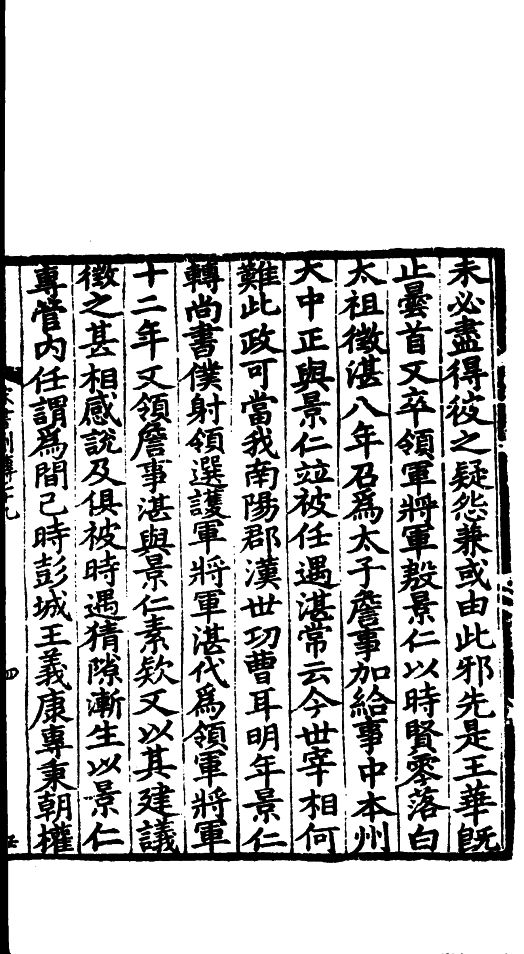 未必盡得彼之疑怨兼或由此邪先是王華旣
止曇首又卒領軍將軍殷景仁以時賢零落白
太祖徵湛八年召爲太子詹事加給事中本州
大中正與景仁竝被任遇湛常云今世宰相何
難此政可當我南陽郡漢世功曹耳明年景仁
轉尚書僕射領選護軍將軍湛代爲領軍將軍
十二年又領詹事湛與景仁素欵又以其建議
徵之甚相感說及俱被時遇猜隙漸生以景仁
專管內任謂爲間己時彭城王義康專秉朝權
四